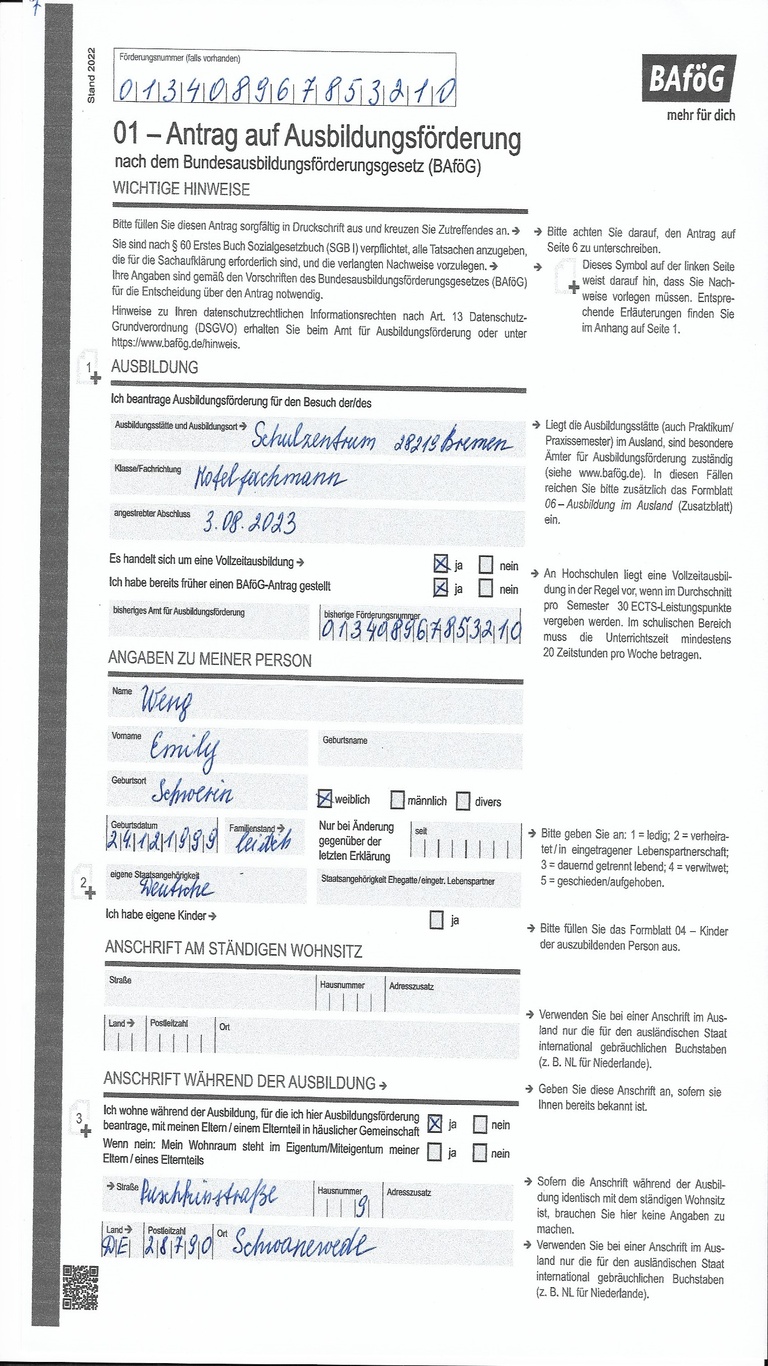 Stand 2022
Förderungsnummer (falls vorhanden)
013408967853210
BAföG
mehr für dich
01 – Antrag auf Ausbildungsförderung
nach dem Bundesausbildungsförderungsgesetz (BAföG)
WICHTIGE HINWEISE
Bitte füllen Sie diesen Antrag sorgfältig in Druckschrift aus und kreuzen Sie Zutreffendes an. →
Sie sind nach § 60 Erstes Buch Sozialgesetzbuch (SGB I) verpflichtet, alle Tatsachen anzugeben,
die für die Sachaufklärung erforderlich sind, und die verlangten Nachweise vorzulegen. →
Ihre Angaben sind gemäß den Vorschriften des Bundesausbildungsförderungsgesetzes (BAföG)
für die Entscheidung über den Antrag notwendig.
Hinweise zu Ihren datenschutzrechtlichen Informationsrechten nach Art. 13 Datenschutz-
Grundverordnung (DSGVO) erhalten Sie beim Amt für Ausbildungsförderung oder unter
https://www.bafög.de/hinweis.
→ Bitte achten Sie darauf, den Antrag auf
Seite 6 zu unterschreiben.
→ Dieses Symbol auf der linken Seite
weist darauf hin, dass Sie Nach-
weise vorlegen müssen. Entspre-
chende Erläuterungen finden Sie
im Anhang auf Seite 1.
1
AUSBILDUNG
Ich beantrage Ausbildungsförderung für den Besuch der/des
Ausbildungsstätte und Ausbildungsort → Schulzentrum 28219 Bremen
Klasse/Fachrichtung Hotelfachmann
angestrebter Abschluss 3.08.2023
→ Liegt die Ausbildungsstätte (auch Praktikum/
Praxissemester) im Ausland, sind besondere
Ämter für Ausbildungsförderung zuständig
(siehe www.bafög.de). In diesen Fällen
reichen Sie bitte zusätzlich das Formblatt
06 – Ausbildung im Ausland (Zusatzblatt)
ein.
Es handelt sich um eine Vollzeitausbildung → ja nein
Ich habe bereits früher einen BAföG-Antrag gestellt ja nein
bisheriges Amt für Ausbildungsförderung bisherige Förderungsnummer
013408967853210
→ An Hochschulen liegt eine Vollzeitausbil-
dung in der Regel vor, wenn im Durchschnitt
pro Semester 30 ECTS-Leistungspunkte
vergeben werden. Im schulischen Bereich
muss die Unterrichtszeit mindestens
20 Zeitstunden pro Woche betragen.
ANGABEN ZU MEINER PERSON
Name Weng
Vorname Emily Geburtsname
Geburtsort Schwerin weiblich männlich divers
Geburtsdatum 24121999 Familienstand → Nur bei Änderung gegenüber der letzten Erklärung seit
→ Bitte geben Sie an: 1 = ledig; 2 = verheira-
tet / in eingetragener Lebenspartnerschaft;
3 = dauernd getrennt lebend; 4 = verwitwet;
5 = geschieden/aufgehoben.
2
eigene Staatsangehörigkeit Deutsche Staatsangehörigkeit Ehegatte/eingetr. Lebenspartner
Ich habe eigene Kinder → ja
→ Bitte füllen Sie das Formblatt 04 – Kinder
der auszubildenden Person aus.
ANSCHRIFT AM STÄNDIGEN WOHNSITZ
Straße Hausnummer Adresszusatz
Land → Postleitzahl Ort
→ Verwenden Sie bei einer Anschrift im Aus-
land nur die für den ausländischen Staat
international gebräuchlichen Buchstaben
(z. B. NL für Niederlande).
ANSCHRIFT WÄHREND DER AUSBILDUNG →
→ Geben Sie diese Anschrift an, sofern sie
Ihnen bereits bekannt ist.
3
Ich wohne während der Ausbildung, für die ich hier Ausbildungsförderung
beantrage, mit meinen Eltern / einem Elternteil in häuslicher Gemeinschaft ja nein
Wenn nein: Mein Wohnraum steht im Eigentum/Miteigentum meiner
Eltern / eines Elternteils ja nein
→ Straße Puschkinstraße Hausnummer 9 Adresszusatz
Land → DE Postleitzahl 28790 Ort Schwanewede
→ Sofern die Anschrift während der Ausbil-
dung identisch mit dem ständigen Wohnsitz
ist, brauchen Sie hier keine Angaben zu
machen.
→ Verwenden Sie bei einer Anschrift im Aus-
land nur die für den ausländischen Staat
international gebräuchlichen Buchstaben
(z. B. NL für Niederlande).